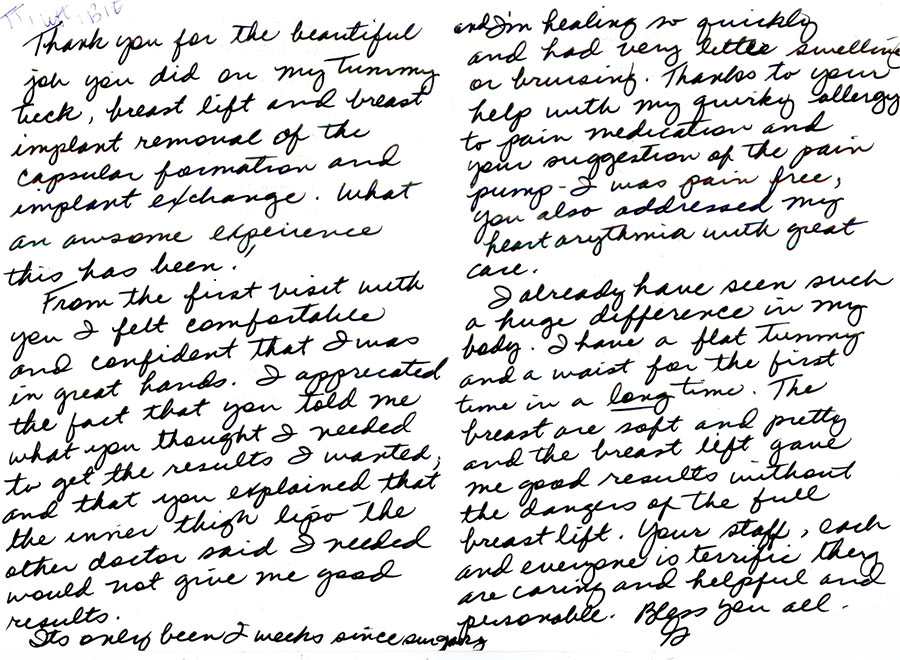 TT, w/, BIE
Thank you for the beautiful
job you did on my Tummy
tuck, breast lift and breast
implant removal of the
capsular formation and
implant exchange. What
an awsome expeirence
this has been!,
From the first visit with
you I felt comfortable
and confident that I was
in great hands. I apprecated
the fact that you told me
what you thought I needed
to get the results I wanted,
and that you explained that
the inner thigh lipo the
other doctor said I needed
would not give me good
results.
Its only been 2 weeks since surgary
and I'm healing so quickly
and had very little swelling
or bruising. Thanks to your
help with my quirky allergy
to pain medication and
your suggestion of the pain
pump - I was pain free,
you also addressed my
heart arythmia with great
care.
I already have seen such
a huge difference in my
body. I have a flat tummy
and a waist for the first
time in a long time. The
breast are soft and pretty
and the breast lift gave
me good results without
the dangers of the full
breast lift. Your staff, each
and everyone is terrific they
are caring and helpful and
personable. Bless you all.